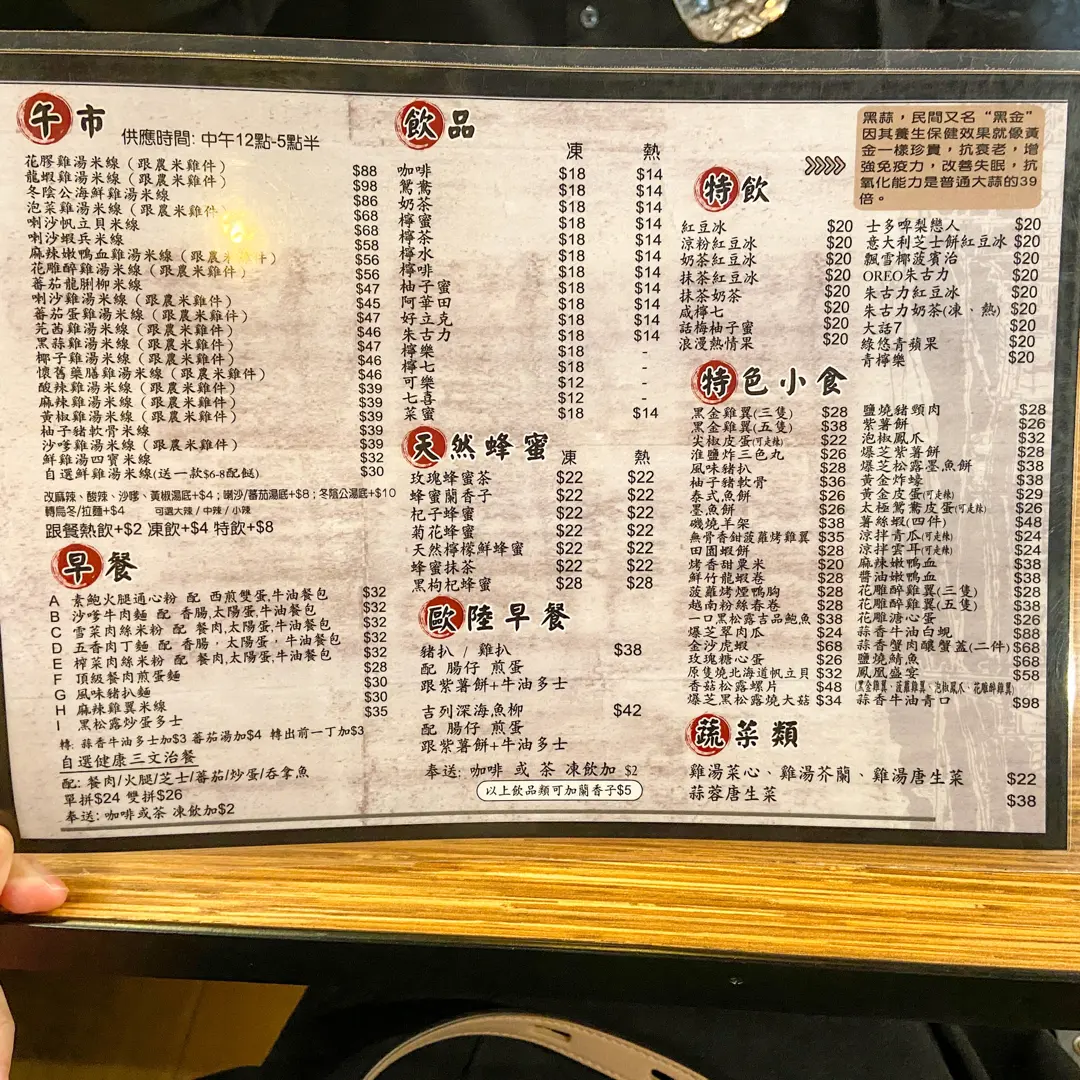 午市
供應時間: 中午12點-5點半
花膠雞湯米線（跟農米雞件） $88
龍蝦雞湯米線（跟農米雞件） $98
冬陰公海鮮雞湯米線 $86
泡菜雞湯米線（跟農米雞件） $68
喇沙帆立貝米線 $68
喇沙蝦兵米線 $58
麻辣嫩鴨血雞湯米線（跟農米雞件） $56
花雕醉雞湯米線（跟農米雞件） $56
番茄龍脷柳米線 $47
喇沙雞湯米線（跟農米雞件） $45
番茄蛋雞湯米線（跟農米雞件） $47
芫茜雞湯米線（跟農米雞件） $46
黑蒜雞湯米線（跟農米雞件） $47
椰子雞湯米線（跟農米雞件） $46
懷舊藥膳雞湯米線（跟農米雞件） $46
酸辣雞湯米線（跟農米雞件） $39
麻辣雞湯米線（跟農米雞件） $39
黃椒雞湯米線（跟農米雞件） $39
柚子豬軟骨米線 $39
沙嗲雞湯米線（跟農米雞件） $39
鮮雞湯四寶米線 $32
自選鮮雞湯米線(送一款$6-8配餸) $30
改麻辣、酸辣、沙嗲、黃椒湯底+$4；喇沙/蕃茄湯底+$8；冬陰公湯底+$10
轉烏冬/拉麵+$4 可選大辣/中辣/小辣
跟餐熱飲+$2 凍飲+$4 特飲+$8
早餐
A 素鮑火腿通心粉 配 西煎雙蛋,牛油餐包 $32
B 沙嗲牛肉麵 配 香腸,太陽蛋,牛油餐包 $32
C 雪菜肉絲米粉 配 餐肉,太陽蛋,牛油餐包 $32
D 五香肉丁麵 配 香腸，太陽蛋，牛油餐包 $32
E 榨菜肉絲米粉 配 餐肉,太陽蛋,牛油餐包 $32
F 頂級餐肉煎蛋麵 $28
G 風味豬扒麵 $30
H 麻辣雞翼米線 $30
I 黑松露炒蛋多士 $35
轉: 蒜香牛油多士加$3 蕃茄湯加$4 轉出前一丁加$3
自選健康三文治餐
配: 餐肉/火腿/芝士/蕃茄/炒蛋/吞拿魚
單拼$24 雙拼$26
奉送: 咖啡或茶 凍飲加$2
飲品
凍 熱
咖啡 $18 $14
鴛鴦 $18 $14
奶茶 $18 $14
檸蜜 $18 $14
檸茶 $18 $14
檸水 $18 $14
檸啡 $18 $14
柚子蜜 $18 $14
阿華田 $18 $14
好立克 $18 $14
朱古力 $18 $14
檸樂 $18 -
檸七 $18 -
可樂 $12 -
七喜 $12 -
菜蜜 $18 $14
天然蜂蜜 凍 熱
玫瑰蜂蜜茶 $22 $22
蜂蜜蘭香子 $22 $22
杞子蜂蜜 $22 $22
菊花蜂蜜 $22 $22
天然檸檬鮮蜂蜜 $22 $22
蜂蜜抹茶 $22 $22
黑枸杞蜂蜜 $28 $28
歐陸早餐
豬扒 / 雞扒 $38
配 腸仔 煎蛋
跟紫薯餅+牛油多士
吉列深海魚柳 $42
配 腸仔 煎蛋
跟紫薯餅+牛油多士
奉送: 咖啡 或 茶 凍飲加 $2
以上飲品類可加蘭香子$5
黑蒜，民間又名“黑金”
因其養生保健效果就像黃
金一樣珍貴，抗衰老，增
強免疫力，改善失眠，抗
氧化能力是普通大蒜的39
倍。
特飲
紅豆冰 $20
涼粉紅豆冰 $20
奶茶紅豆冰 $20
抹茶紅豆冰 $20
抹茶奶茶 $20
咸檸七 $20
話梅柚子蜜 $20
浪漫熱情果 $20
士多啤梨戀人 $20
意大利芝士餅紅豆冰 $20
飄雪椰菠賓治 $20
OREO朱古力 $20
朱古力紅豆冰 $20
朱古力奶茶(凍、熱) $20
大話7 $20
綠悠青蘋果 $20
青檸樂 $20
特色小食
黑金雞翼(三隻) $28
黑金雞翼(五隻) $38
尖椒皮蛋(可走辣) $22
淮鹽炸三色丸 $26
風味豬扒 $28
柚子豬軟骨 $36
泰式魚餅 $26
墨魚餅 $26
磯燒羊架 $38
無骨香鉗菠蘿烤雞翼 $35
田園蝦餅 $28
烤香甜粟米 $20
鮮竹龍蝦卷 $28
菠蘿烤煙鴨胸 $28
越南粉絲春卷 $28
一口黑松露吉品鮑魚 $38
爆芝翠肉瓜 $24
金沙虎蝦 $68
玫瑰糖心蛋 $26
原隻燒北海道帆立貝 $68
香菇松露螺片 $48
爆芝黑松露燒大菇 $34
鹽燒豬頸肉 $28
紫薯餅 $26
泡椒鳳爪 $32
爆芝紫薯餅 $28
爆芝松露墨魚餅 $38
黃金炸蠔 $38
黃金皮蛋(可走辣) $29
太極鴛鴦皮蛋(可走辣) $26
薯絲蝦(四件) $48
涼拌青瓜(可走辣) $24
涼拌雲耳(可走辣) $24
麻辣嫩鴨血 $38
醬油嫩鴨血 $38
花雕醉雞翼(三隻) $28
花雕醉雞翼(五隻) $38
花雕溏心蛋 $26
蒜香牛油白蜆 $88
蒜香蟹肉釀蟹蓋(二件) $68
鹽燒鯖魚 $68
鳳凰盛宴 $58
(黑金雞翼、菠蘿雞翼、泡椒鳳爪、花雕醉雞翼)
蒜香牛油青口 $98
蔬菜類
雞湯菜心、雞湯芥蘭、雞湯唐生菜 $22
蒜蓉唐生菜 $38